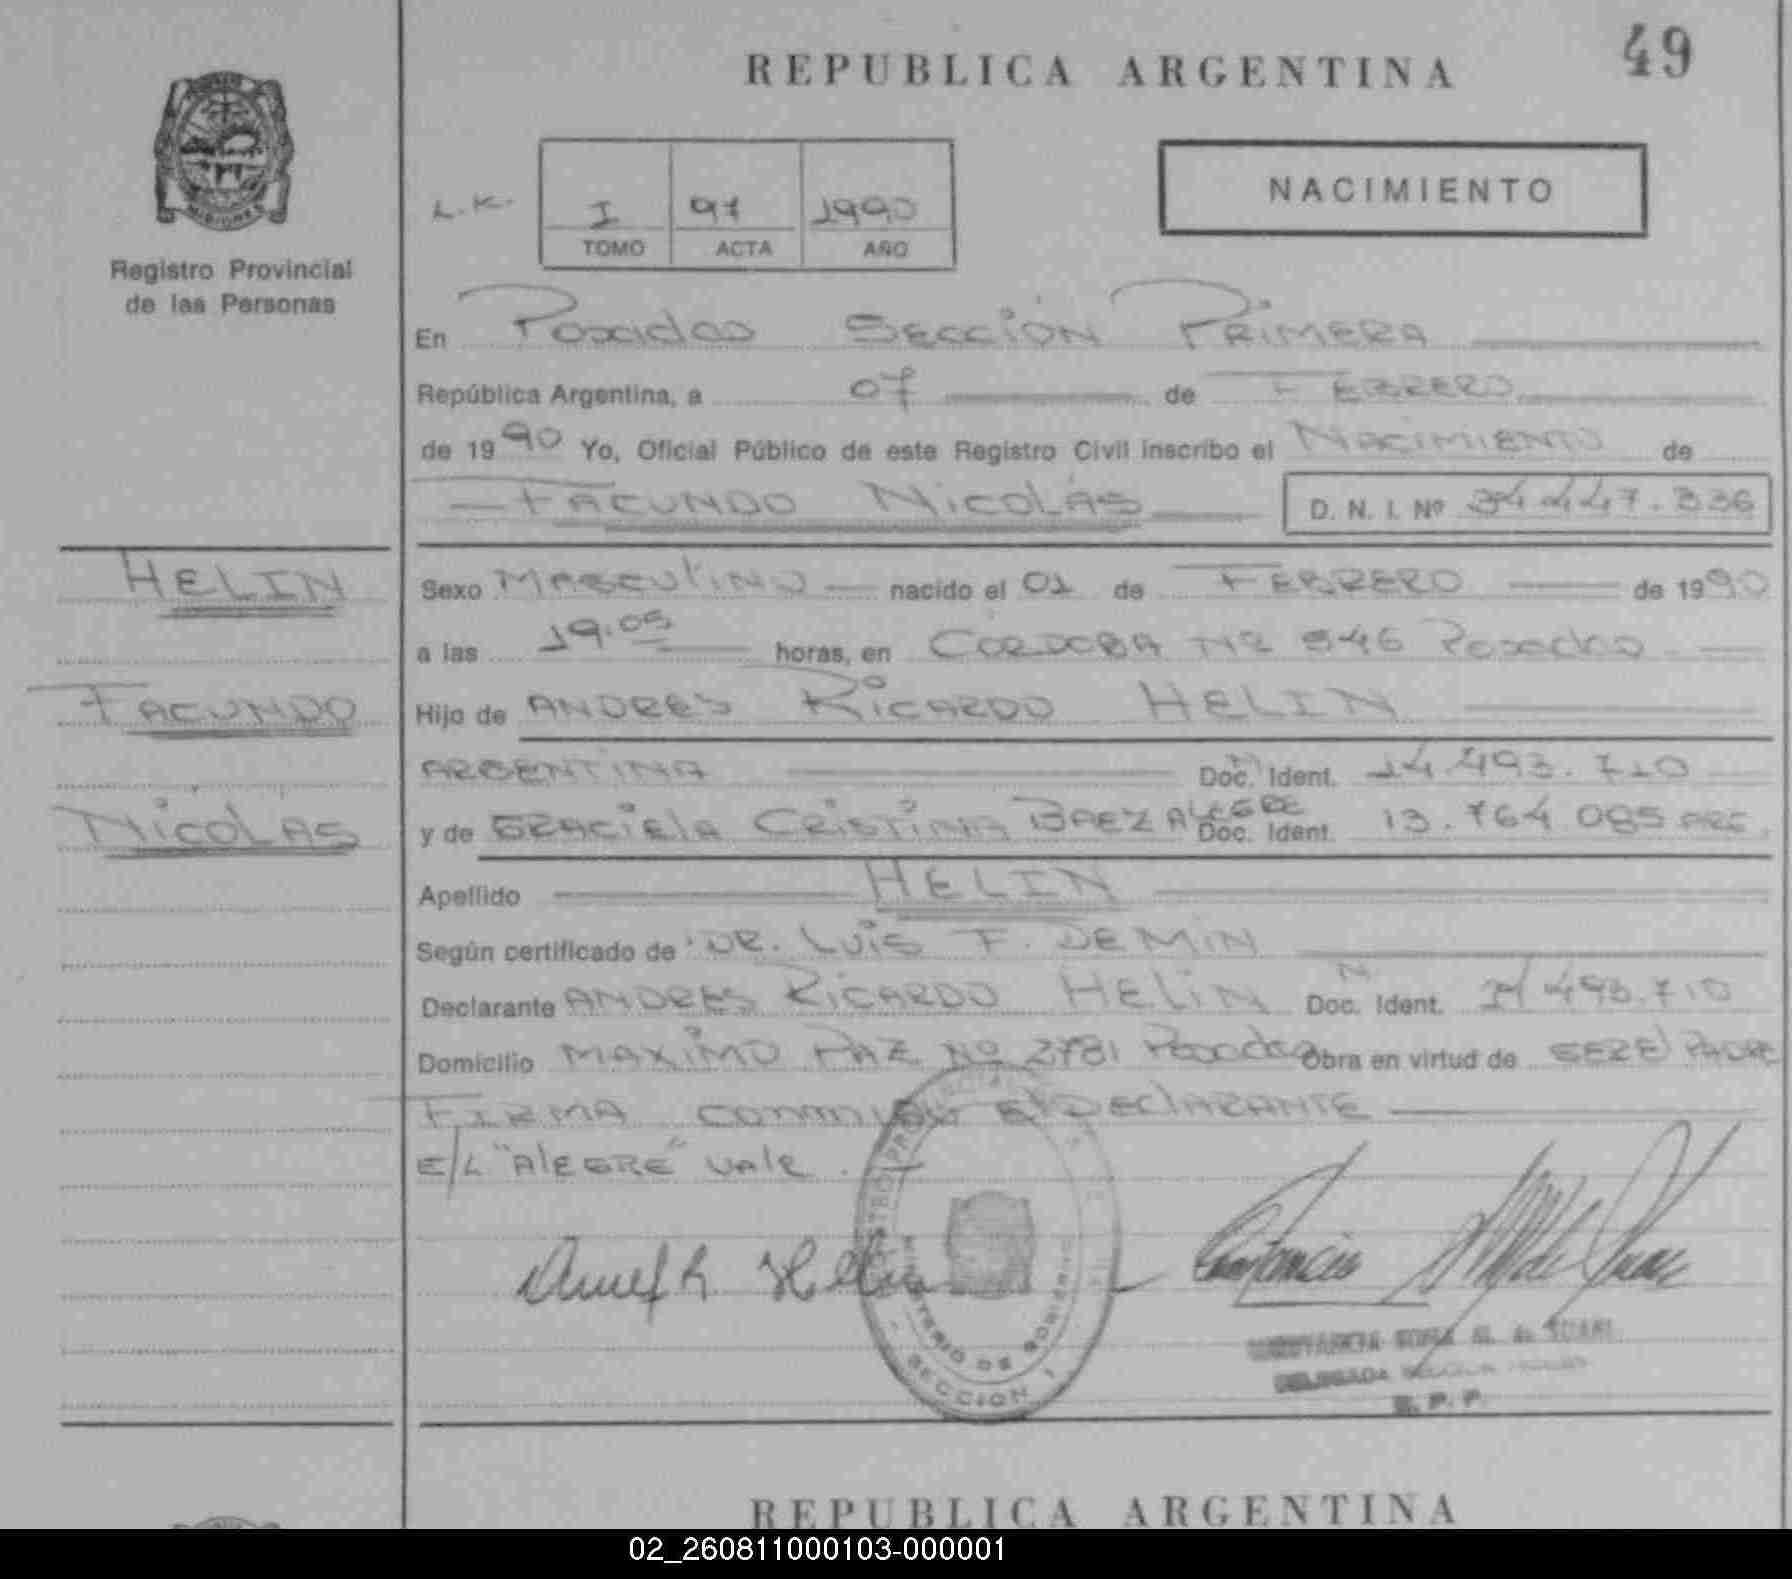 49
REPUBLICA ARGENTINA
MISIONES
Registro Provincial
de las Personas
L.K.
I 97 1990
TOMO ACTA AÑO
NACIMIENTO
En Posadas Sección Primera
República Argentina, a 07 de FEBRERO
de 1990 Yo, Oficial Público de este Registro Civil inscribo el NACIMIENTO de
FACUNDO NICOLÁS D. N. I. Nº 34.447.336
HELIN
FACUNDO
NICOLÁS
Sexo MASCULINO nacido el 01 de FEBRERO de 1990
a las 19.05 horas, en CORDOBA Nº 546 Posadas
Hijo de ANDRES RICARDO HELIN
ARGENTINA Doc. Ident. 14.493.710
y de GRACIELA CRISTINA BAEZ ALEGRE Doc. Ident. 13.764.085 ARG.
Apellido HELIN
Según certificado de DR. LUIS F. DEMIN
Declarante ANDRES RICARDO HELIN Doc. Ident. 14.493.710
Domicilio MAXIMO PAZ Nº 2781 Posadas Obra en virtud de SER EL PADRE
FIRMA CONMIGO EL DECLARANTE
E/L "ALEGRE" VALE.
MINISTERIO DE GOBIERNO
SECCION 1
R. P. P.
REPUBLICA ARGENTINA
02_260811000103-000001